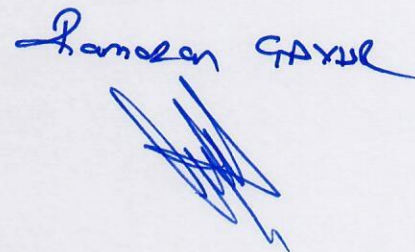 Ramazan GAYUR